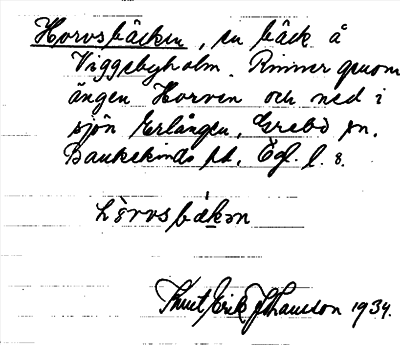 Horvsbäcken, en bäck å
Viggebyholm. Rinner genom
ängen Horven och ned i
sjön Erlången, Grebo sn.
Bankekinds hd, Ögl. l. s.
Knut Erik Johansson 1934.